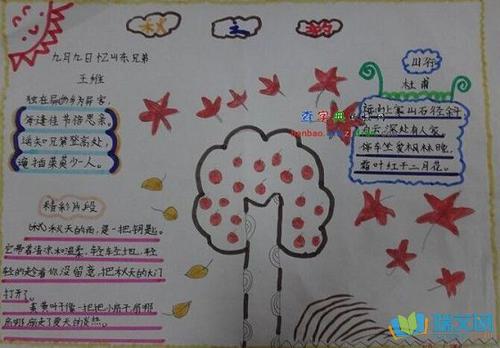 秋之韵
九月九日忆山东兄弟
王维
独在异乡为异客，
每逢佳节倍思亲。
遥知兄弟登高处，
遍插茱萸少一人。
山行
杜甫
远上寒山石径斜
白云深处有人家，
停车坐爱枫林晚，
霜叶红于二月花。
精彩片段
秋天的雨，是一把钥匙。
它带着清凉和温柔，轻轻地，轻
轻的趁着你没留意，把秋天的大门
打开了。
黄黄叶子像一把把小扇子扇哪
扇哪扇走了夏天的炎热。